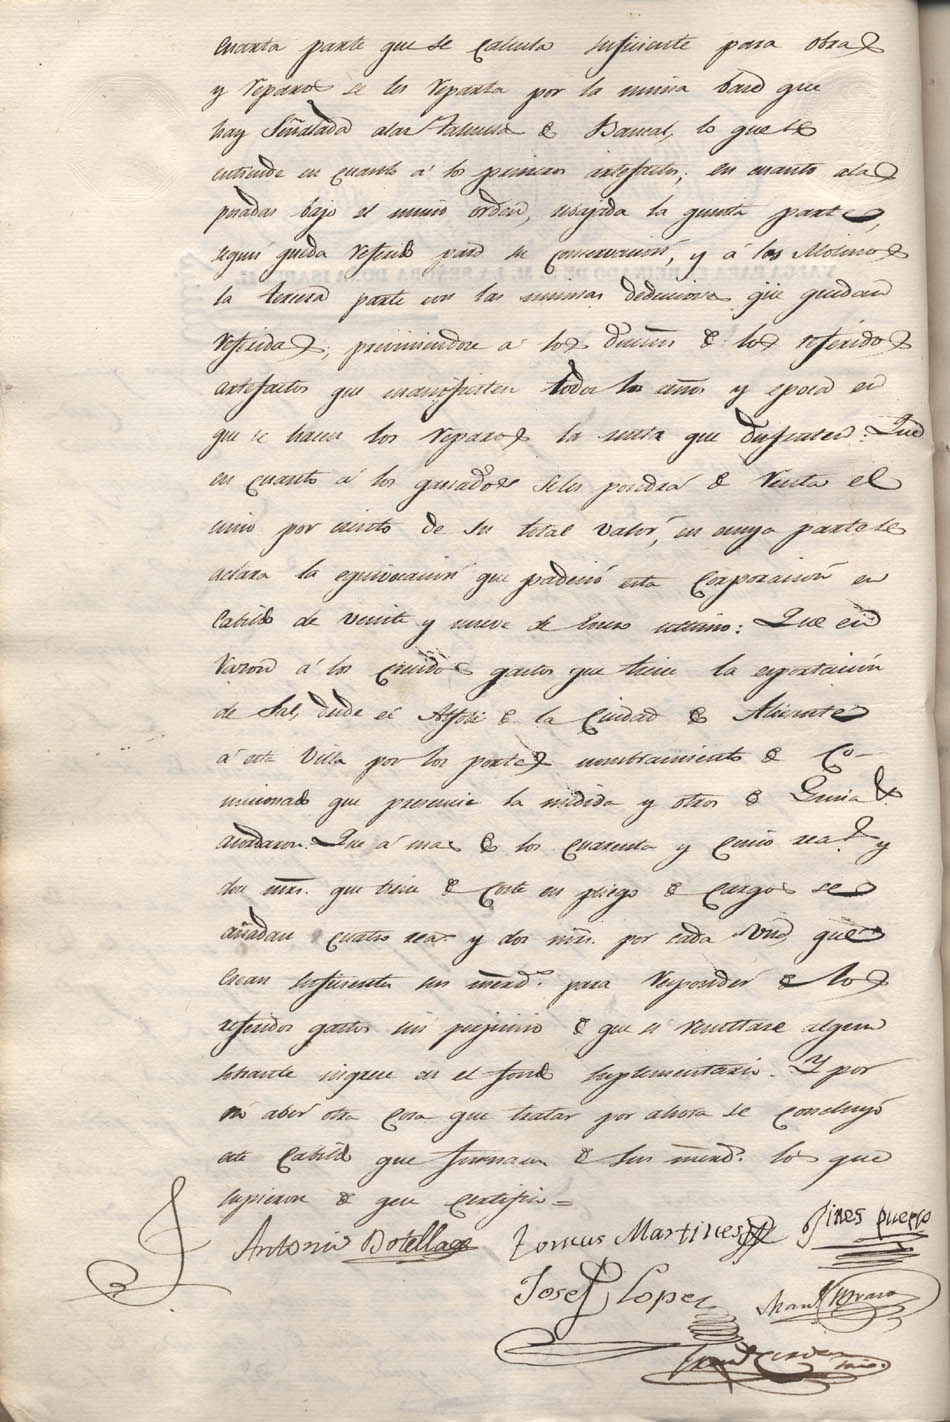 cuarta parte que se calcula suficiente para obras
y reparos se les reparta por la misma base que
hay señalada a las Tahullas de Bancal, lo que se
entiende en cuanto á los primeros artefactos; en cuanto a las
posadas bajo el mismo orden, rebajada la quinta parte,
segun queda referido para su conservacion, y á los Molinos
la tercera parte con las mismas deducciones que quedan
referidas; previniendose á los dueños de los referidos
artefactos que manifiesten todos los años y epoca en
que se hacen los reparos la renta que disfruten: Que
en cuanto á los ganados se les pondrá de renta el
cinco por ciento de su total valor, en cuya parte se
aclara la equivocacion que padeció esta Corporacion en
Cabildo de veinte y nueve de Enero ultimo: Que en
razon á los crecidos gastos que tiene la exportacion
de Sal, desde el Alfoli de la Ciudad de Alicante
á esta Villa por los portes nombramiento de Co-
micionado que presencie la medida y otros de
acordaron. Que á mas de los cuarenta y cinco rea.s y
dos mrs. que tiene de coste en pliego de cargos se
añadan cuatro rea.s y dos mrs. por cada una, que
crean suficientes sus merd.s para responder de los
referidos gastos sin perjuicio de que si resultase algun
sobrante ingrese en el fondo suplementario. Y por
no aber otra cosa que tratar por ahora se concluyó
este Cabildo que firmaron de sus merd.s los que
supieron de que certifico =
Antonio Botella Tomas Martines Jines puerto
Josef Lopez